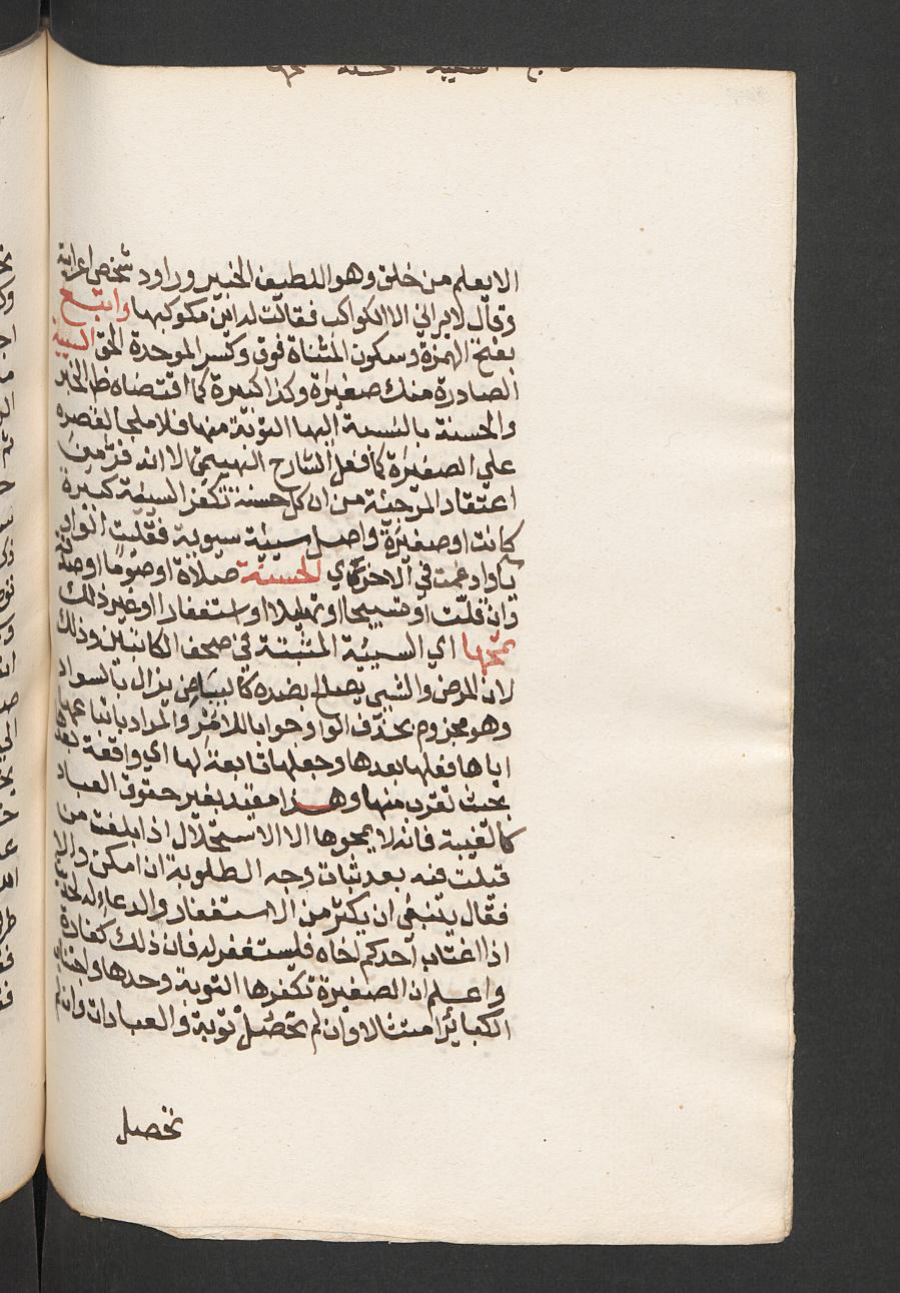 الا يعلم من خلق وهو اللطيف الخبير وراود شخص اعرابية
وقال لا يراني الا الكواكب فقالت له اين مكوكبها واتبع
بفتح الهمزة وسكون المثناة فوق وكسر الموحدة الحق السيئة
الصادرة منك صغيرة وكذا كبيرة كما اقتضاه ظاهر الخبر
والحسنة بالنسبة اليها التوبة منها فلا ملجا لقصره
علي الصغيرة كما فعل الشارح الهيتمي الا انه فر من
اعتقاد المرجئة من ان كل حسنة تكفر السيئة كبيرة
كانت او صغيرة واصل سيئة سيوية فقلبت الواو
ياء وادغمت في الاخري الحسنة صلاة او صوما او صدقة
وان قلت او تسبيحا او تهليلا او استغفارا او غير ذلك
تمحها اي السيئة المثبتة في صحف الكاتبين وذلك
لان المرض والشي يصلح بضده كالبياض يزال بالسواد
وهو مجزوم بحذف الواو جوابا للامر والمراد باتباعها
اياها فعلها بعدها وجعلها تابعة لها اي واقعة بعدها
بحيث تقرب منها وهذا مقيد بغير حقوق العباد
كالغيبة فانه لا يمحوها الا الاستحلال اذا بلغت من
قيلت فيه بعد بيان وجه الظلومة ان امكن والا
فقال ينبغي ان يكثر من الاستغفار والدعاء له لخبر
اذا اغتاب احدكم اخاه فليستغفر له فان ذلك كفارة
واعلم ان الصغيرة تكفرها التوبة وحدها واجتناب
الكبائر امتثالا وان لم تحصل توبة والعبادات وان لم
تحصل